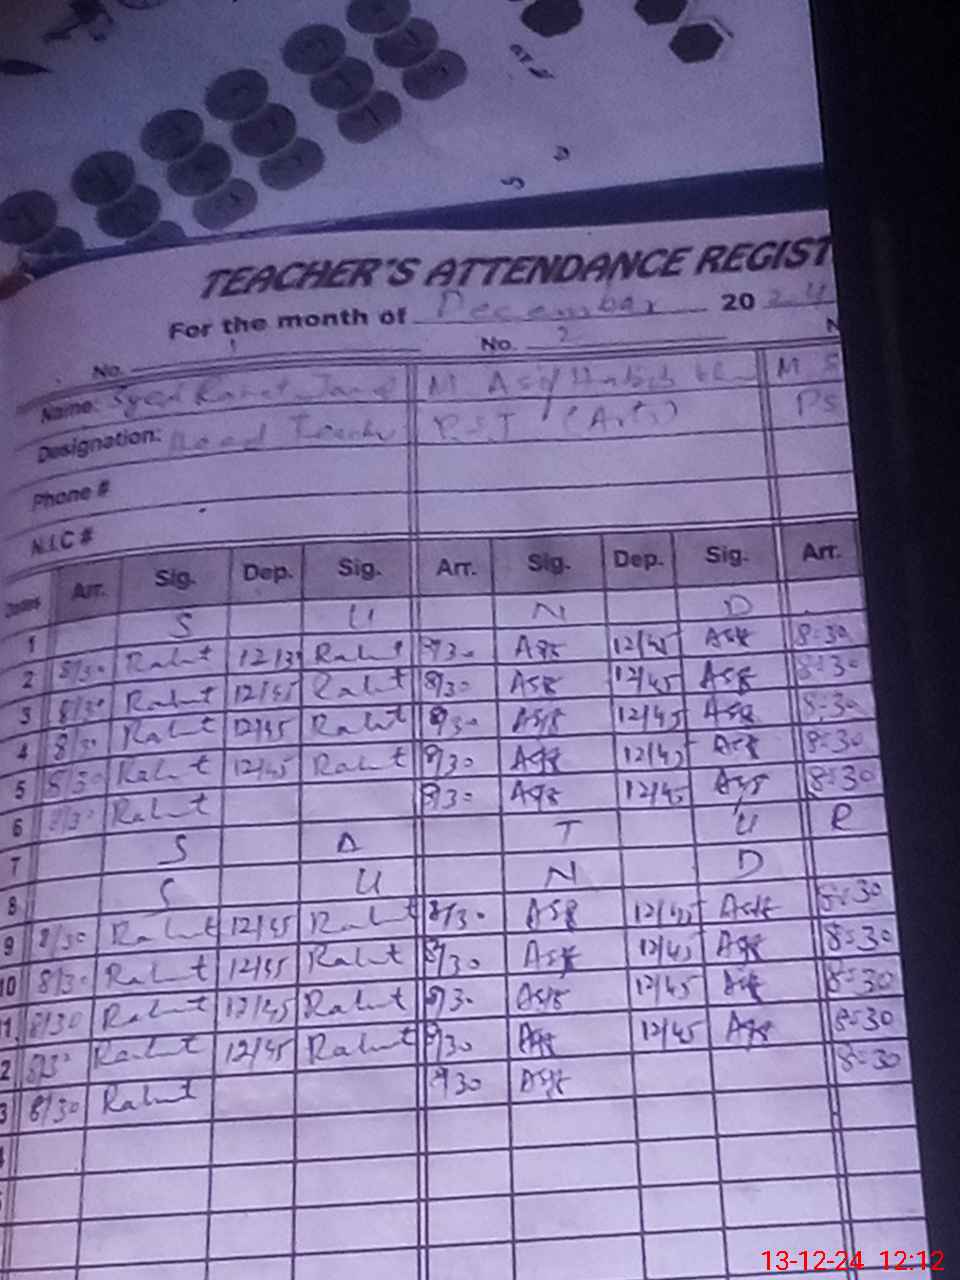 TEACHER'S ATTENDANCE REGIST
For the month of December 20 24
No. 1 No. 2 N
Name: Syed M Asif Habib M S
Designation: Head Teacher P.S.T (Arts) PS
Phone #
N.I.C #
Dates Arr. Sig. Dep. Sig. Arr. Sig. Dep. Sig. Arr.
1 S U N D
2 8/30 Rahut 12/3 Rahut 8/30 Asif 12/45 Asif 8:30
3 8/30 Rahut 12/45 Rahut 8/30 Asif 12/45 Asif 8:30
4 8/30 Rahut 12/45 Rahut 8/30 Asif 12/45 Asif 8:30
5 8/30 Rahut 12/45 Rahut 8/30 Asif 12/45 Asif 8:30
6 8/30 Rahut 8/30 Asif 12/45 Asif 8:30
7 S A T U R
8 S U N D
9 8/30 Rahut 12/45 Rahut 8/30 Asif 12/45 Asif 8:30
10 8/30 Rahut 12/45 Rahut 8/30 Asif 12/45 Asif 8:30
11 8/30 Rahut 12/45 Rahut 8/30 Asif 12/45 Asif 8:30
2 8/30 Rahut 12/45 Rahut 8/30 Asif 12/45 Asif 8:30
3 8/30 Rahut 8/30 Asif 8:30
13-12-24 12:12